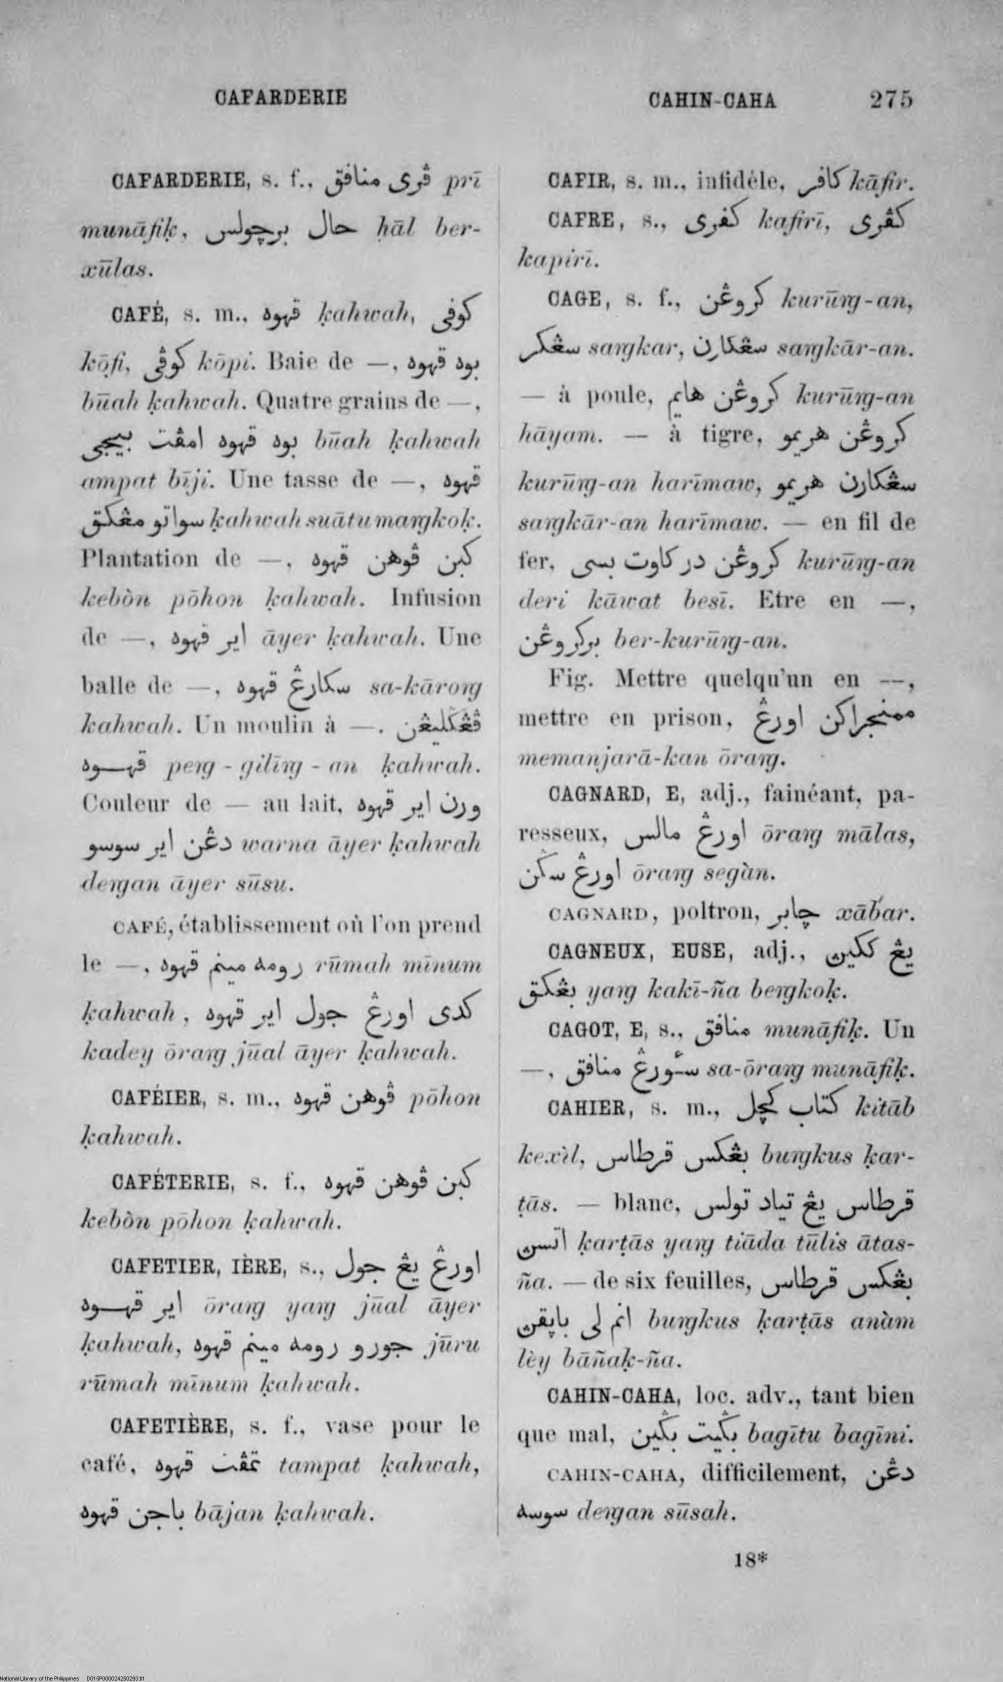 CAFARDERIE
CAHIN-CAHA 275
CAFARDERIE, s. f., ڤری منافق prī
munāfiḳ, حال برچولس ḥāl ber-
xūlas.
CAFÉ, s. m., قهوه ḳahwah, كوفی
kōfi, كوڤی kōpi. Baie de —, بوه قهوه
būah ḳahwah. Quatre grains de —,
بوه قهوه امڤت بيجی būah ḳahwah
ampat bīji. Une tasse de —, قهوه
سواتو مڠكق ḳahwah suātu maŋkoḳ.
Plantation de —, كبن ڤوهن قهوه
kebòn pōhon ḳahwah. Infusion
de —, اير قهوه āyer ḳahwah. Une
balle de —, سكارڠ قهوه sa-kāroŋ
ḳahwah. Un moulin à —, ڤڠݢليڠن
قهوه peŋ-gilīŋ-an ḳahwah.
Couleur de — au lait, ورن اير قهوه
دڠن اير سوسو warna āyer ḳahwah
deŋan āyer sūsu.
CAFÉ, établissement où l'on prend
le —, رومه مينم قهوه rūmah mīnum
ḳahwah, كدی اورڠ جول اير قهوه
kadey ōraŋ jūal āyer ḳahwah.
CAFÉIER, s. m., ڤوهن قهوه pōhon
ḳahwah.
CAFÉTERIE, s. f., كبن ڤوهن قهوه
kebòn pōhon ḳahwah.
CAFETIER, IÈRE, s., اورڠ يڠ جول
اير قهوه ōraŋ yaŋ jūal āyer
ḳahwah, جورو رومه مينم قهوه jūru
rūmah mīnum ḳahwah.
CAFETIÈRE, s. f., vase pour le
café, تمڤت قهوه tampat ḳahwah,
باجن قهوه bājan ḳahwah.
CAFIR, s. m., infidèle, كافر kāfir.
CAFRE, s., كفری kafirī, كڤری
kapirī.
CAGE, s. f., كروڠن kurūŋ-an,
سڠكر saŋkar, سڠكارن saŋkār-an.
— à poule, كروڠن هايم kurūŋ-an
hāyam. — à tigre, كروڠن هريمو
kurūŋ-an harīmaw, سڠكارن هريمو
saŋkār-an harīmaw. — en fil de
fer, كروڠن در كاوت بسی kurūŋ-an
deri kāwat besī. Etre en —,
بركروڠن ber-kurūŋ-an.
Fig. Mettre quelqu'un en —,
mettre en prison, ممنجراكن اورڠ
memanjarā-kan ōraŋ.
CAGNARD, E, adj., fainéant, pa-
resseux, اورڠ مالس ōraŋ mālas,
اورڠ سݢن ōraŋ segàn.
CAGNARD, poltron, چابر xābar.
CAGNEUX, EUSE, adj., يڠ ككين
بڠكق yaŋ kakī-ña beŋkoḳ.
CAGOT, E, s., منافق munāfiḳ. Un
—, سئورڠ منافق sa-ōraŋ munāfiḳ.
CAHIER, s. m., كتاب كچل kitāb
kexìl, بڠكس قرطاس buŋkus ḳar-
ṭās. — blanc, قرطاس يڠ تياد تولس
اتسن ḳarṭās yaŋ tiāda tūlis ātas-
ña. — de six feuilles, بڠكس قرطاس
انم لی باڽقن buŋkus ḳarṭās anàm
lèy bāñaḳ-ña.
CAHIN-CAHA, loc. adv., tant bien
que mal, بݢيت بݢين bagītu bagīni.
CAHIN-CAHA, difficilement, دڠن
سوسه deŋan sūsah.
18*
National Library of the Philippines